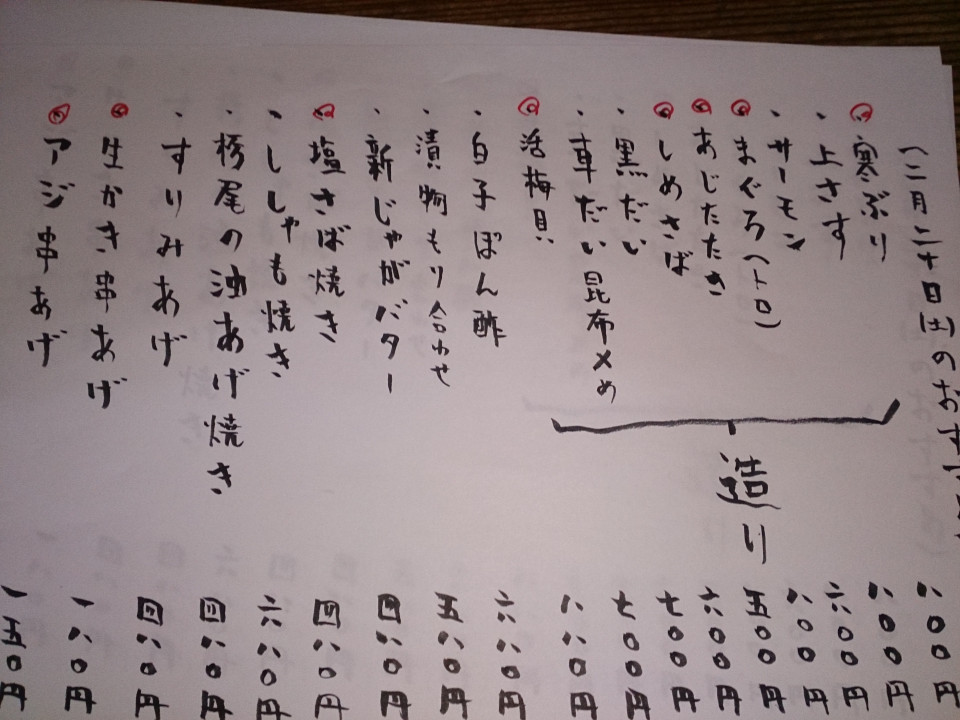 一二月二十日(土)のおす
寒ぶり 八〇〇円
・上さす 八〇〇円
・サーモン 六〇〇円
まぐろ(トロ) 八〇〇円
あじたたき 五〇〇円
しめさば 六〇〇円
・黒だい 七〇〇円
・車だい昆布〆め 七〇〇円
造り
活梅貝 八八〇円
・白子ぽん酢 六八〇円
・漬物もり合わせ 五八〇円
・新じゃがバター 四八〇円
塩さば焼き 四八〇円
・ししゃも焼き 六八〇円
・栃尾の油あげ焼き 四八〇円
・すりみあげ 四八〇円
生かき串あげ 一八〇円
アジ串あげ 一五〇円